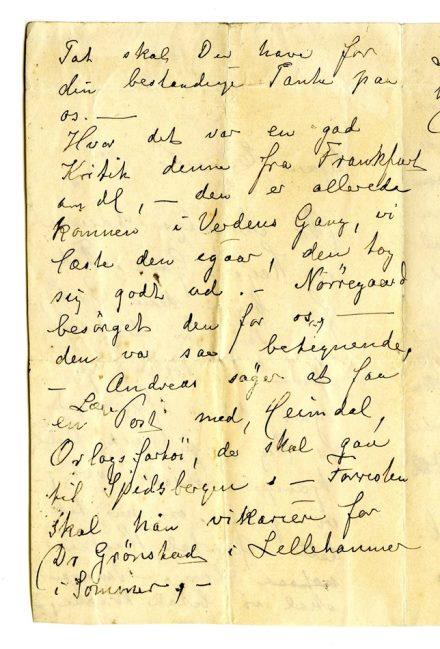 Tak skal Du have for
din bestandige Tanke paa
os. —
Hvor det var en god
Kritik denne fra Frankfurt
am M, — den er allerede
kommen i Verdens Gang, vi
læste den igaar, den tog
sig godt ud. — Nörregaard
besörget den for os, —
den var saa betegnende,
— Andreas söger at faa
en Læge Post med, Heimdal,
Orlogsfartöi, der skal gaa
til Spidsbergen. — Forresten
skal han vikariere for
Dr Grönstad i Lillehammer
i Sommer, —